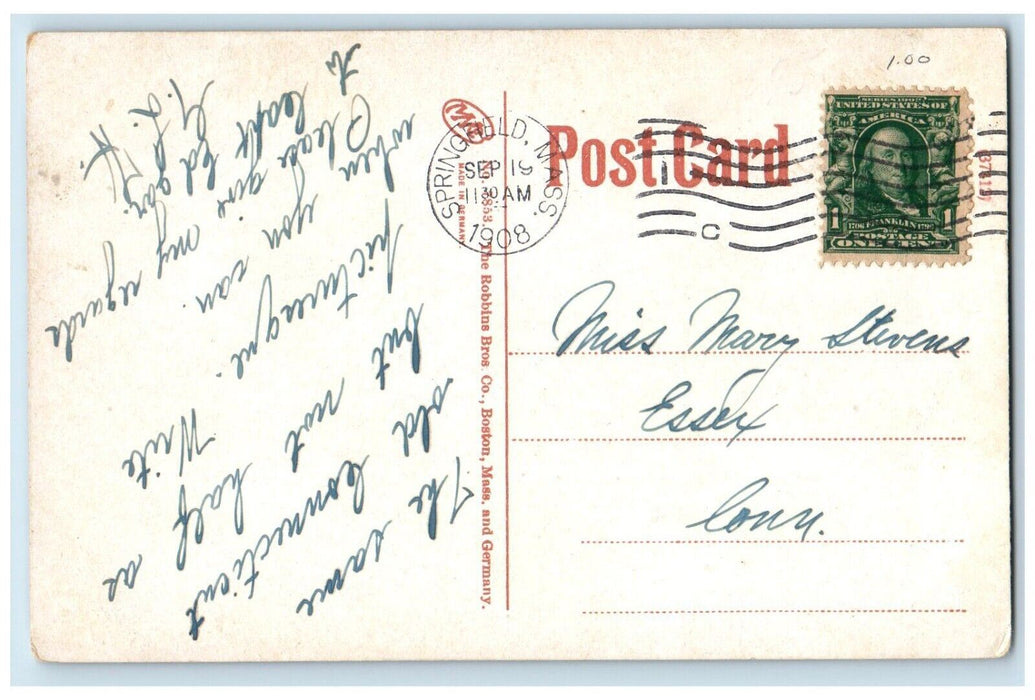 The same
old Connecticut
but not half as
picturesque. Write
when you can.
Please give my regards
to Capt. Ed
G. L. H.
MADE IN GERMANY
The Robbins Bros. Co., Boston, Mass. and Germany.
Post Card
SPRINGFIELD, MASS.
SEP 19
11 30 AM
1908
C
1.00
SERIES 1902
UNITED STATES OF
AMERICA
1 1706 FRANKLIN 1790 1
POSTAGE
ONE CENT
Miss Mary Stevens
Essex
Conn.